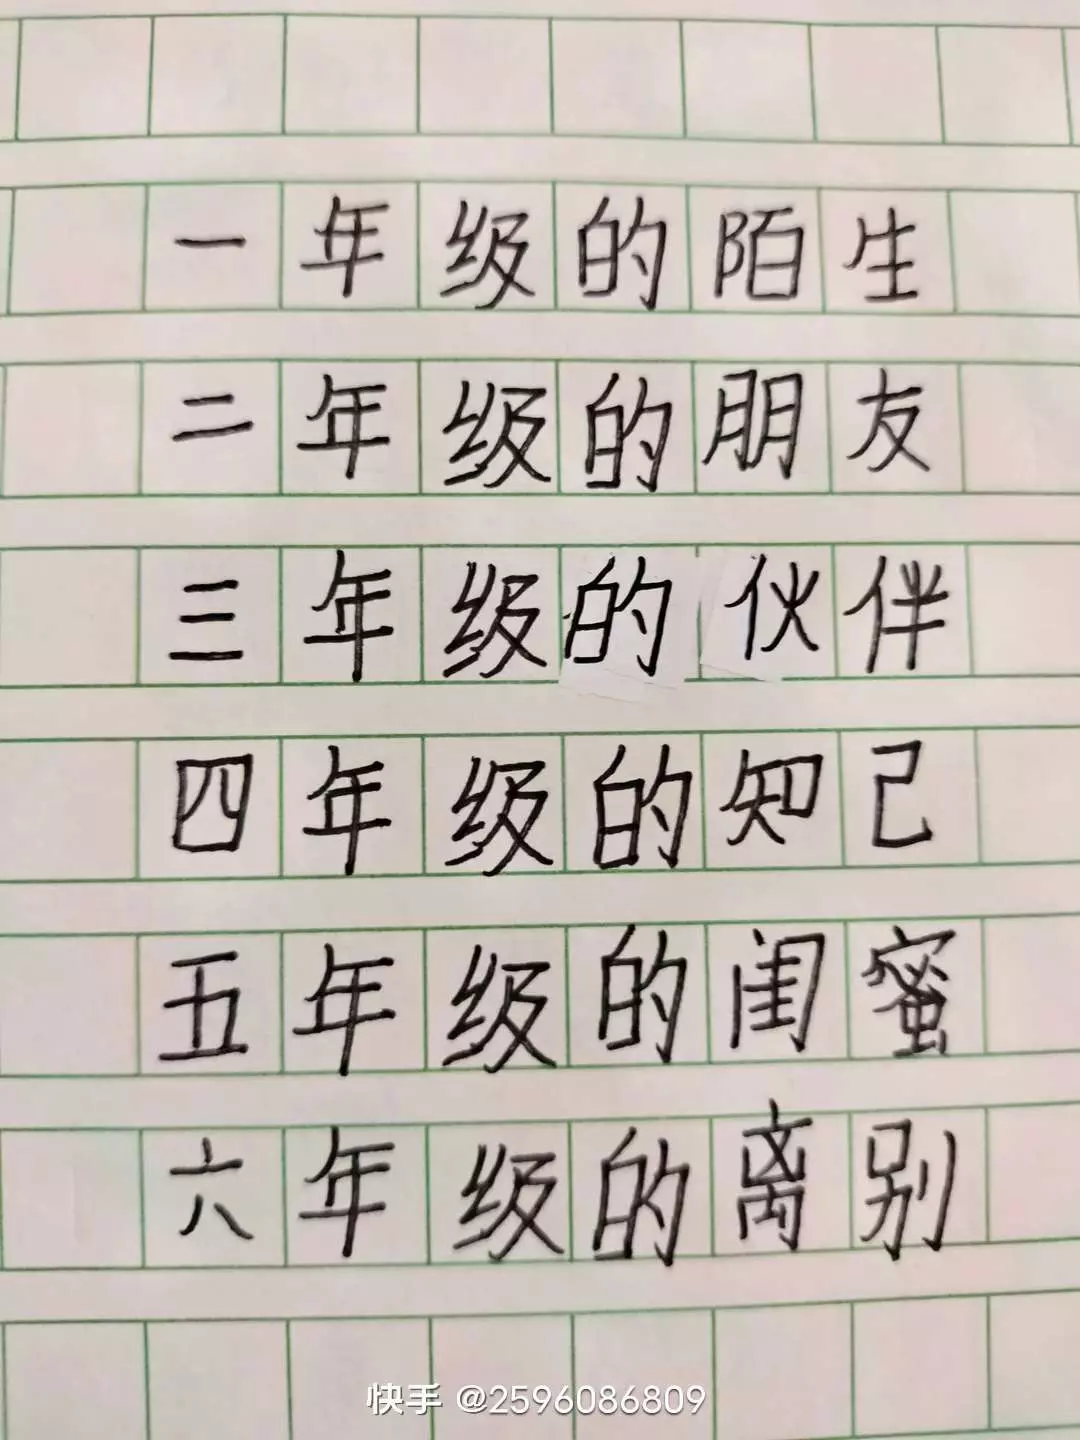 一年级的陌生
二年级的朋友
三年级的伙伴
四年级的知己
五年级的闺蜜
六年级的离别
快手 @2596086809